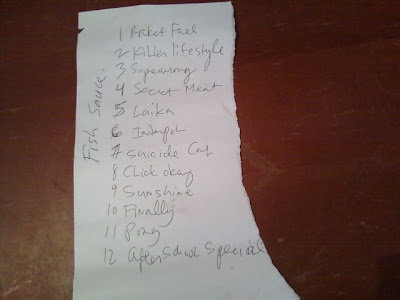 Fish Sauce.
1 Rocket Fuel
2 Killer lifestyle
3
4 Secret Meat
5 Laika
6 Interpol
7 Suicide Cap
8 Click okay
9 Sunshine
10 Finally
11 Pong
12 After School Special